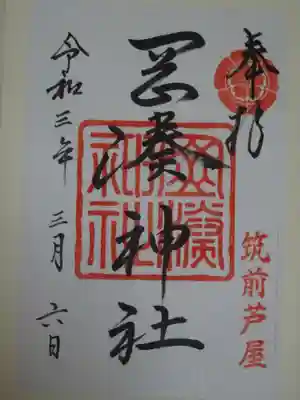 奉拝
筑前芦屋
岡湊神社
岡湊神社
令和三年三月六日